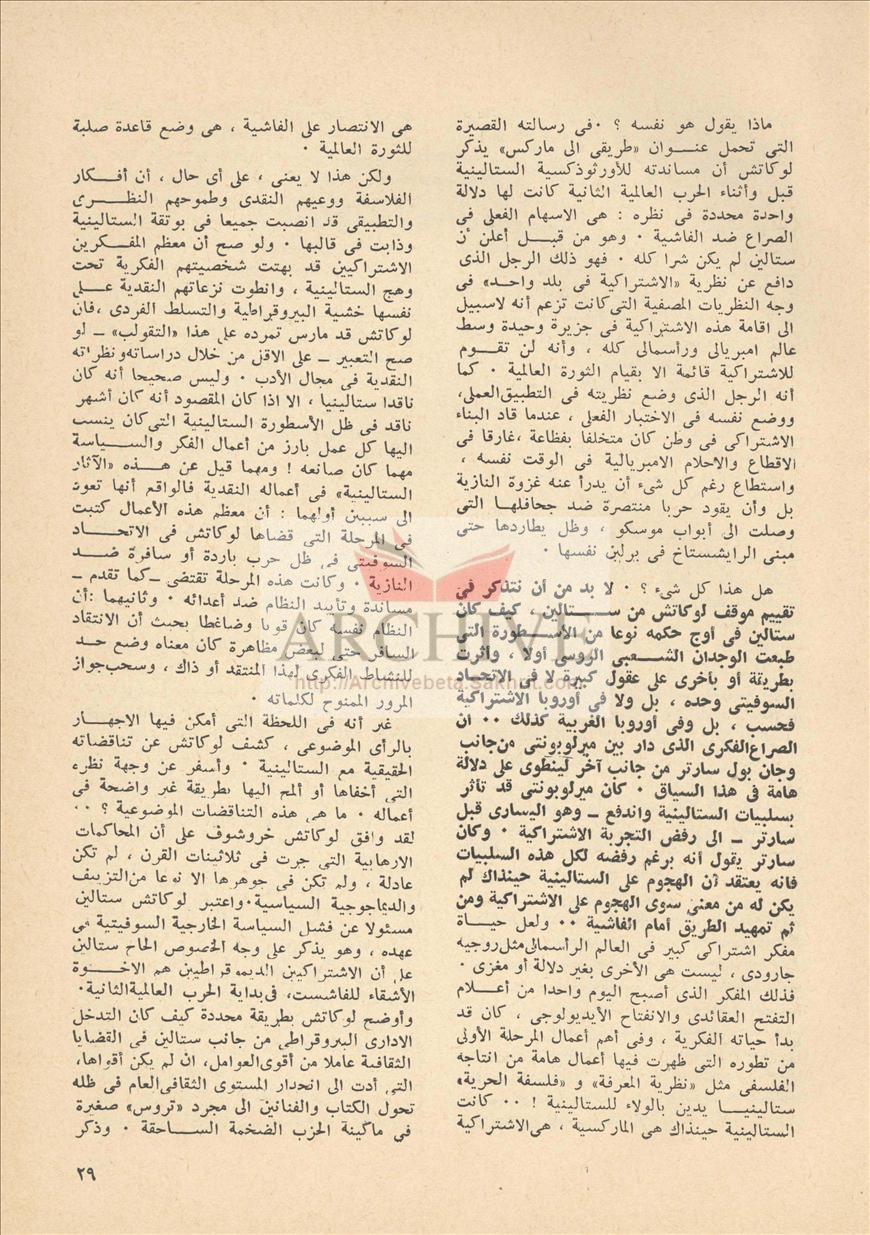 ماذا يقول هو نفسه ؟ ٠ فى رسالته القصيرة
التى تحمل عنـــوان «طريقى الى ماركس» يذكر
لوكاتش أن مساندته للأورثوذكسية الستالينية
قبل وأثناء الحرب العالمية الثانية كانت لها دلالة
واحدة محددة فى نظره : هى الاسهام الفعلى فى
الصراع ضد الفاشية ٠ وهو من قبـــل أعلن أن
ستالين لم يكن شرا كله ٠ فهو ذلك الرجل الذى
دافع عن نظرية «الاشتراكية فى بلد واحـد» فى
وجه النظريات المصفية التى كانت تزعم أنه لاسبيل
الى اقامة هذه الاشتراكية فى جزيرة وحيدة وسط
عالم امبريالى ورأسمالى كله ، وأنه لن تقـــوم
للاشتراكية قائمة الا بقيام الثورة العالمية ٠ كما
أنه الرجل الذى وضع نظريته فى التطبيق العملى،
ووضع نفسه فى الاختبار الفعلى ، عندما قاد البناء
الاشتراكى فى وطن كان متخلفا بفظاعة ،غارقا فى
الاقطاع والاحلام الامبريالية فى الوقت نفسه ،
واستطاع رغم كل شىء أن يدرأ عنه غزوة النازية
بل وأن يقود حربا منتصرة ضد جحافلهـا التى
وصلت الى أبواب موسكو ، وظل يطاردها حتى
مبنى الرايشستاخ فى برلين نفسها ٠
هل هذا كل شىء ؟ ٠ لا بد من أن نتذكر فى
تقييم موقف لوكاتش من ســـتالين ، كيف كان
ستالين فى أوج حكمه نوعا من الأســـطورة التى
طبعت الوجدان الشـــعبى الروسى أولا ، وأثرت
بطريقة أو بأخرى على عقول كبيرة لا فى الاتحـاد
السوفيتى وحده ، بل ولا فى أوروبا الاشتراكية
فحسب ، بل وفى أوروبا الغربية كذلك ٠٠ ان
الصراع الفكرى الذى دار بين ميرلوبونتى من جانب
وجان بول سارتر من جانب آخر لينطوى على دلالة
هامة فى هذا السياق ٠ كان ميرلوبونتى قد تأثر
بسلبيات الستالينية واندفع ــ وهو اليسارى قبل
سارتر ــ الى رفض التجربة الاشتراكية ٠ وكان
سارتر يقول أنه برغم رفضه لكل هذه السلبيات
فانه يعتقد أن الهجوم على الستالينية حينذاك لم
يكن له من معنى سوى الهجوم على الاشتراكية ومن
ثم تمهيد الطريق أمام الفاشية ٠٠ ولعل حيـــاة
مفكر اشتراكى كبير فى العالم الرأسمالى مثل روجيه
جارودى ، ليست هى الأخرى بغير دلالة أو مغزى ٠
فذلك المفكر الذى أصبح اليوم واحدا من أعـــلام
التفتح العقائدى والانفتاح الأيديولوجى ، كان قد
بدأ حياته الفكرية ، وفى أهم أعمال المرحلة الأولى
من تطوره التى ظهرت فيها أعمال هامة من انتاجه
الفلسفى مثل «نظرية المعرفة» و «فلسفة الحرية»
ستالينيـــا يدين بالولاء للستالينية ! ٠٠ كانت
الستالينية حينذاك هى الماركسية ، هى الاشتراكية
هى الانتصار على الفاشية ، هى وضع قاعدة صلبة
للثورة العالمية ٠
ولكن هذا لا يعنى ، على أى حال ، أن أفـــكار
الفلاسفة ووعيهم النقدى وطموحهم النظـــرى
والتطبيقى قد انصبت جميعا فى بوتقة الستالينية
وذابت فى قالبها ٠ ولو صح أن معظم المفـــكرين
الاشتراكيين قد بهتت شخصيتهم الفكرية تحت
وهج الستالينية ، وانطوت نزعاتهم النقدية عـــلى
نفسها خشية البيروقراطية والتسلط الفردى ،فان
لوكاتش قد مارس تمرده على هذا «التقولب» ــ لو
صح التعبير ــ على الاقل من خلال دراساته ونظراته
النقدية فى مجال الأدب ٠ وليس صحيحا أنه كان
ناقدا ستالينيا ، الا اذا كان المقصود أنه كان أشهر
ناقد فى ظل الأسطورة الستالينية التى كان ينسب
اليها كل عمل بارز من أعمال الفكر والســـياسة
مهما كان صانعه ! ومهما قيل عن هـــذه «الآثار
الستالينية» فى أعماله النقدية فالواقع أنها تعود
الى سببين أولهما : أن معظم هذه الأعمال كتبت
فى المرحلة التى قضاها لوكاتش فى الاتحـــاد
السوفيتى فى ظل حرب باردة أو سافرة ضـــد
النازية ٠ وكانت هذه المرحلة تقتضى ــ كما تقدم ــ
مساندة وتأييد النظام ضد أعدائه ٠ وثانيهما :أن
النظام نفسه كان قويا وضاغطا بحيث أن الانتقاد
السافر حتى لبعض مظاهره كان معناه وضع حـــد
للنشاط الفكرى لهذا المنتقد أو ذاك ، وسحب جواز
المرور الممنوح لكلماته ٠
غير أنه فى اللحظة التى أمكن فيها الاجهـــار
بالرأى الموضوعى ، كشف لوكاتش عن تناقضاته
الحقيقية مع الستالينية ٠ وأسفر عن وجهة نظره
التى أخفاها أو ألمح اليها بطريقة غير واضحة فى
أعماله ٠ ما هى هذه التناقضات الموضوعية ؟ ٠٠
لقد وافق لوكاتش خروشوف على أن المحاكمات
الارهابية التى جرت فى ثلاثينات القرن ، لم تكن
عادلة ، ولم تكن فى جوهرها الا نوعا من التزييف
والديماجوجية السياسية٠ واعتبر لوكاتش ستالين
مسئولا عن فشل السياسة الخارجية السوفيتية فى
عهده ، وهو يذكر على وجه الخصوص الحاح ستالين
على أن الاشتراكيين الديموقراطيين هم الاخـــوة
الأشقاء للفاشست، فى بداية الحرب العالمية الثانية٠
وأوضح لوكاتش بطريقة محددة كيف كان التدخل
الادارى البيروقراطى من جانب ستالين فى القضايا
الثقافية عاملا من أقوى العوامل، ان لم يكن أقواها،
التى أدت الى انحدار المستوى الثقافى العام فى ظله
تحول الكتاب والفنانين الى مجرد «تروس» صغيرة
فى ماكينة الحزب الضخمة الســـاحقة ٠ وذكر
ARCHIVE
http://Archivebeta.Sakhrit.com
٢٩